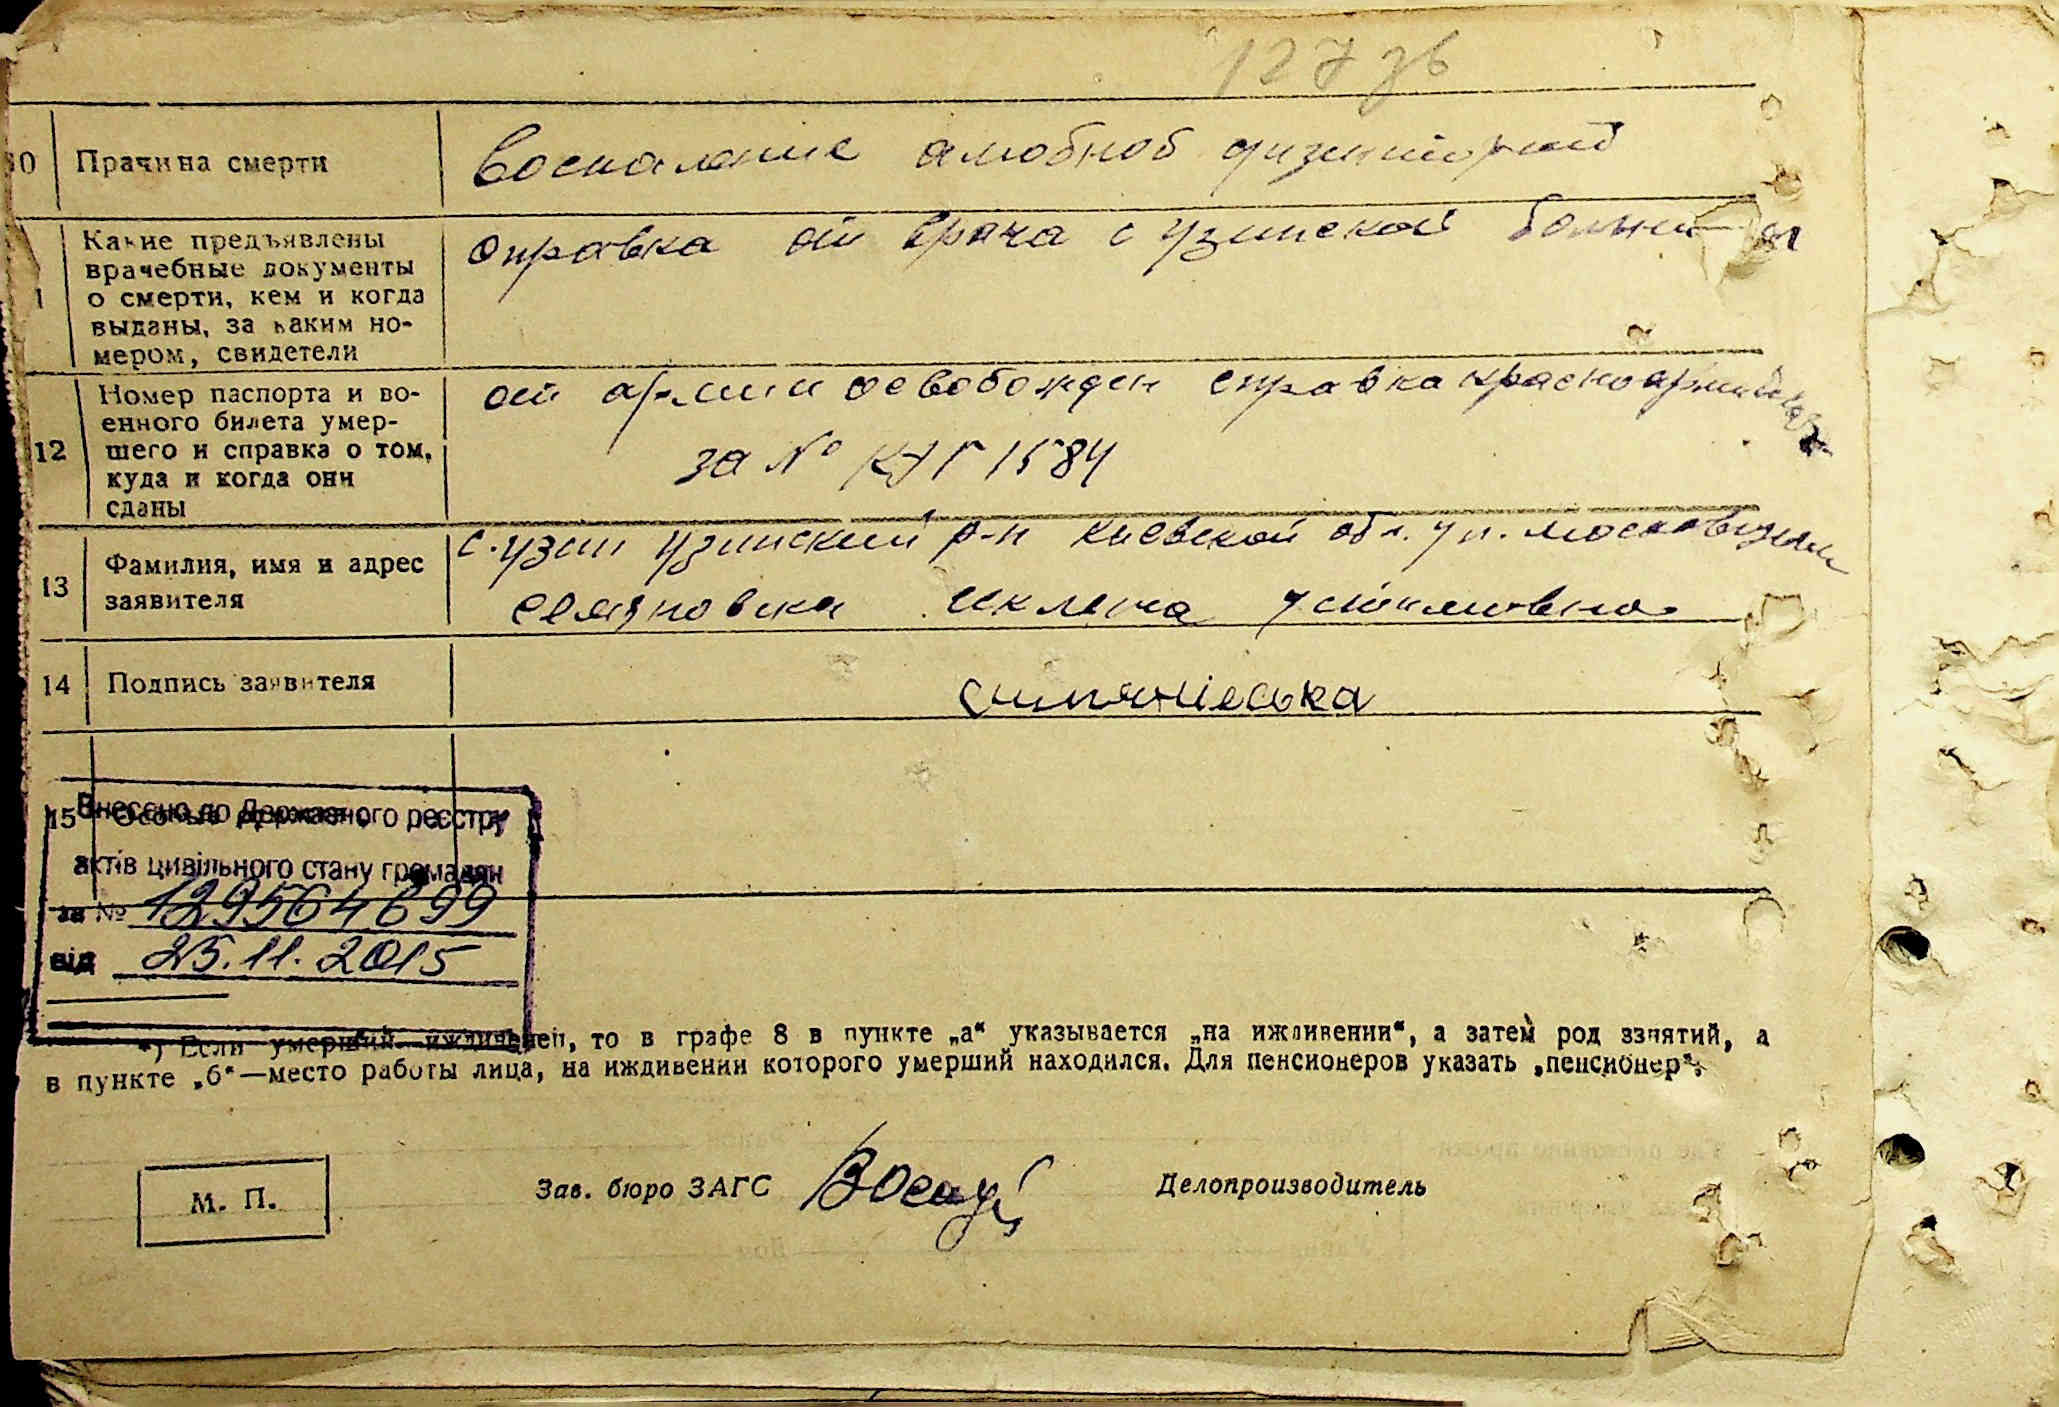 127 зв
10 Прачина смерти
Воспаление амобноб дизентерией
1 Какие предъявлены
врачебные документы
о смерти, кем и когда
выданы, за каким но-
мером, свидетели
справка от врача с узинской больницы
12 Номер паспорта и во-
енного билета умер-
шего и справка о том,
куда и когда они
сданы
от армии освобожден справка
за № 1584
13 Фамилия, имя и адрес
заявителя
с. узин узинский р-н киевской обл. ул.
14 Подпись заявителя
15
Внесено до Державного реєстру
актів цивільного стану громадян
за № 129564699
від 25.11.2015
*) Если умерший иждивенец, то в графе 8 в пункте „а“ указывается „на иждивении“, а затем род занятий, а
в пункте „б“—место работы лица, на иждивении которого умерший находился. Для пенсионеров указать „пенсионер“.
М. П.
Зав. бюро ЗАГС
Делопроизводитель